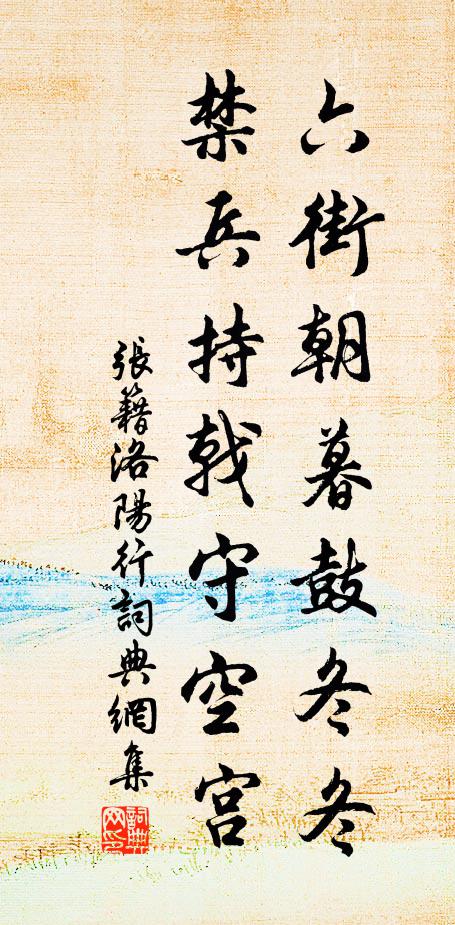 六街朝暮鼓冬冬
禁兵持戟守空宫
張籍洛陽行詞典網集
詞典网印